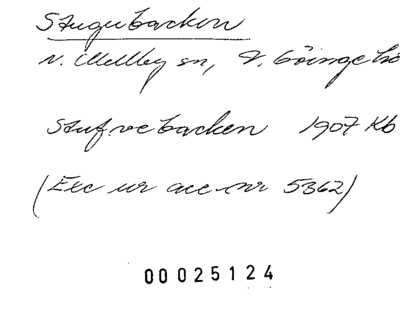 Stugubacken
N. Mellby sn, V. Göinge hd
Stufvebacken 1907 Kb
(Exc ur acc. nr 5362)
00025124